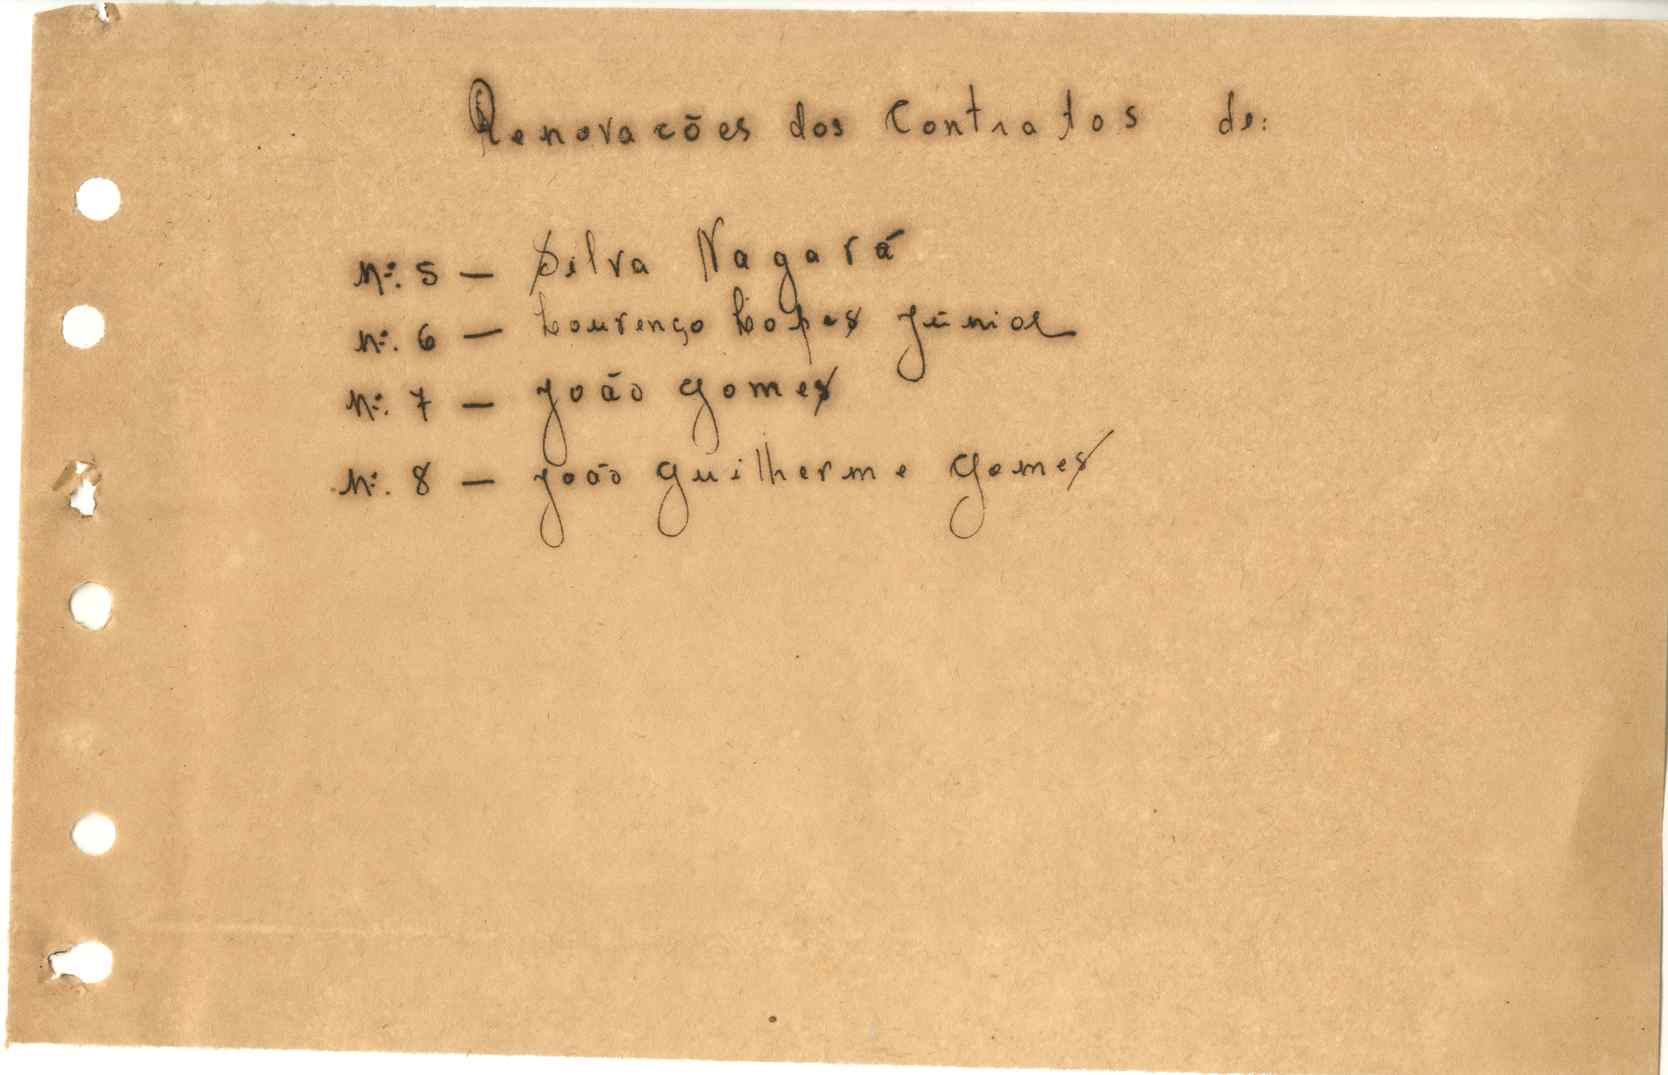 Renovacões dos Contratos de:
Nº. 5 — Silva Nagará
Nº. 6 — Lourenço Lopes Júnior
Nº. 7 — João Gomes
Nº. 8 — João Guilherme Gomes